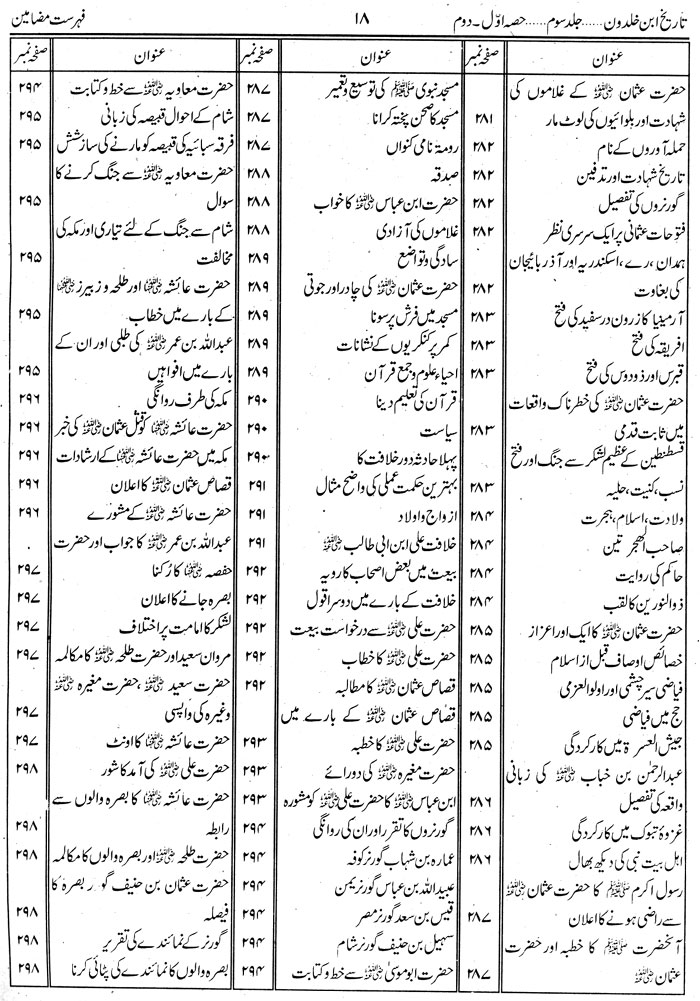 تاریخ ابن خلدون ...... جلد سوم ...... حصہ اوّل۔ دوم
۱۸
فہرست مضامین
عنوان
صفحہ نمبر
حضرت عثمان ؓ کے غلاموں کی
شہادت اور بلوائیوں کی لوٹ مار ۲۸۱
حملہ آوروں کے نام ۲۸۲
تاریخ شہادت اور تدفین ۲۸۲
گورنروں کی تفصیل ۲۸۲
فتوحات عثمانی پر ایک سرسری نظر ۲۸۲
ہمدان، رے، اسکندریہ اور آذربائیجان
کی بغاوت ۲۸۲
آرمینیا کا زرون در سفید کی فتح ۲۸۳
افریقہ کی فتح ۲۸۳
قبرس اور ذودوس کی فتح ۲۸۳
حضرت عثمان ؓ کی خطرناک واقعات
میں ثابت قدمی ۲۸۳
قسطنطین کے عظیم لشکر سے جنگ اور فتح
نسب، کنیت، حلیہ ۲۸۳
ولادت، اسلام، ہجرت ۲۸۴
صاحب الھجر تین ۲۸۴
حاکم کی روایت ۲۸۴
ذوالنورین کا لقب ۲۸۴
حضرت عثمان ؓ کا ایک اور اعزاز ۲۸۵
خصائص اوصاف قبل از اسلام ۲۸۵
فیاضی سیر چشمی اور اولوالعزمی ۲۸۵
حج میں فیاضی ۲۸۵
جیش العسرۃ میں کارکردگی ۲۸۵
عبدالرحمٰن بن خباب ؓ کی زبانی
واقعہ کی تفصیل ۲۸۶
غزوۂ تبوک میں کارکردگی ۲۸۶
اہل بیت نبی کی دیکھ بھال ۲۸۶
رسول اکرم ﷺ کا حضرت عثمان ؓ
سے راضی ہونے کا اعلان ۲۸۷
آنحضرت ﷺ کا خطبہ اور حضرت
عثمان ؓ ۲۸۷
عنوان
صفحہ نمبر
مسجد نبوی ﷺ کی توسیع و تعمیر ۲۸۷
مسجد کا صحن پختہ کرانا ۲۸۷
رومۃ نامی کنواں ۲۸۷
صدقہ ۲۸۸
حضرت ابن عباس ؓ کا خواب ۲۸۸
غلاموں کی آزادی ۲۸۸
سادگی و تواضع ۲۸۹
حضرت عثمان ؓ کی چادر اور جوتی ۲۸۹
مسجد میں فرش پر سونا ۲۸۹
کمر پر کنکریوں کے نشانات ۲۸۹
احیاء علوم و جمع قرآن ۲۸۹
قرآن کی تعلیم دینا ۲۹۰
سیاست ۲۹۰
پہلا حادثہ دور خلافت کا ۲۹۰
بہترین حکمت عملی کی واضح مثال ۲۹۱
ازواج و اولاد ۲۹۱
خلافت علی ابن ابی طالب ؓ ۲۹۱
بیعت میں بعض اصحاب کا رویہ ۲۹۲
خلافت کے بارے میں دوسرا قول ۲۹۲
حضرت علی ؓ سے درخواست بیعت ۲۹۲
حضرت علی ؓ کا خطاب ۲۹۲
قصاص عثمان ؓ کا مطالبہ ۲۹۲
قصاص عثمان ؓ کے بارے میں
حضرت علی ؓ کا خطبہ ۲۹۳
حضرت مغیرہ ؓ کی دورائے ۲۹۳
ابن عباس ؓ کا حضرت علی ؓ کو مشورہ ۲۹۳
گورنروں کا تقرر اور ان کی روانگی ۲۹۴
عمارہ بن شہاب گورنر کوفہ ۲۹۴
عبید اللہ بن عباس گورنر یمن ۲۹۴
قیس بن سعد گورنر مصر ۲۹۴
سہیل بن حنیف گورنر شام ۲۹۴
حضرت ابوموسیٰ ؓ سے خط و کتابت ۲۹۴
عنوان
صفحہ نمبر
حضرت معاویہ ؓ سے خط و کتابت ۲۹۴
شام کے احوال قبیصہ کی زبانی ۲۹۵
فرقہ سبائیہ کی قبیصہ کو مارنے کی سازشش ۲۹۵
حضرت معاویہ ؓ سے جنگ کرنے کا
سوال ۲۹۵
شام سے جنگ کے لئے تیاری اور مکہ کی
مخالفت ۲۹۵
حضرت عائشہ ؓ اور طلحہ و زبیرز ؓ
کے بارے میں خطاب ۲۹۵
عبداللہ بن عمر ؓ کی طلبی اور ان کے
بارے میں افواہیں ۲۹۵
مکہ کی طرف روانگی ۲۹۶
حضرت عائشہ ؓ کو قتل عثمان ؓ کی خبر ۲۹۶
مکہ میں حضرت عائشہ ؓ کے ارشادات ۲۹۶
قصاص عثمان ؓ کا اعلان ۲۹۶
حضرت عائشہ ؓ کے مشورے ۲۹۶
عبداللہ بن عمر ؓ کا جواب اور حضرت
حفصہ ؓ کا رُکنا ۲۹۷
بصرہ جانے کا اعلان ۲۹۷
لشکر کا امامت پر اختلاف ۲۹۷
مروان سعید اور حضرت طلحہ ؓ کا مکالمہ ۲۹۷
حضرت سعید ؓ، حضرت مغیرہ ؓ
وغیرہ کی واپسی ۲۹۷
حضرت عائشہ ؓ کا اونٹ ۲۹۷
حضرت علی ؓ کی آمد کا شور ۲۹۸
حضرت عائشہ ؓ کا بصرہ والوں سے
رابطہ ۲۹۸
حضرت طلحہ ؓ اور بصرہ والوں کا مکالمہ ۲۹۸
حضرت عثمان بن حنیف گورنر بصرہ کا
فیصلہ ۲۹۸
گورنر کے نمائندے کی تقریر ۲۹۸
بصرہ والوں کا نمائندے کی پٹائی کرنا ۲۹۸